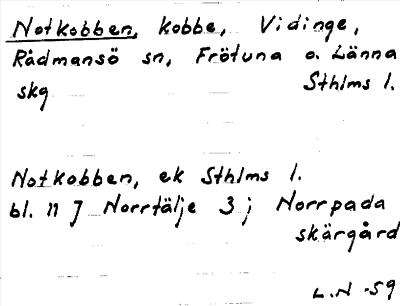 Notkobben, kobbe, Vidinge,
Rådmansö sn, Frötuna o. Länna
skg Sthlms l.
Notkobben, ek Sthlms l.
bl. 11 J Norrtälje 3; Norrpada
skärgård
L.N -59